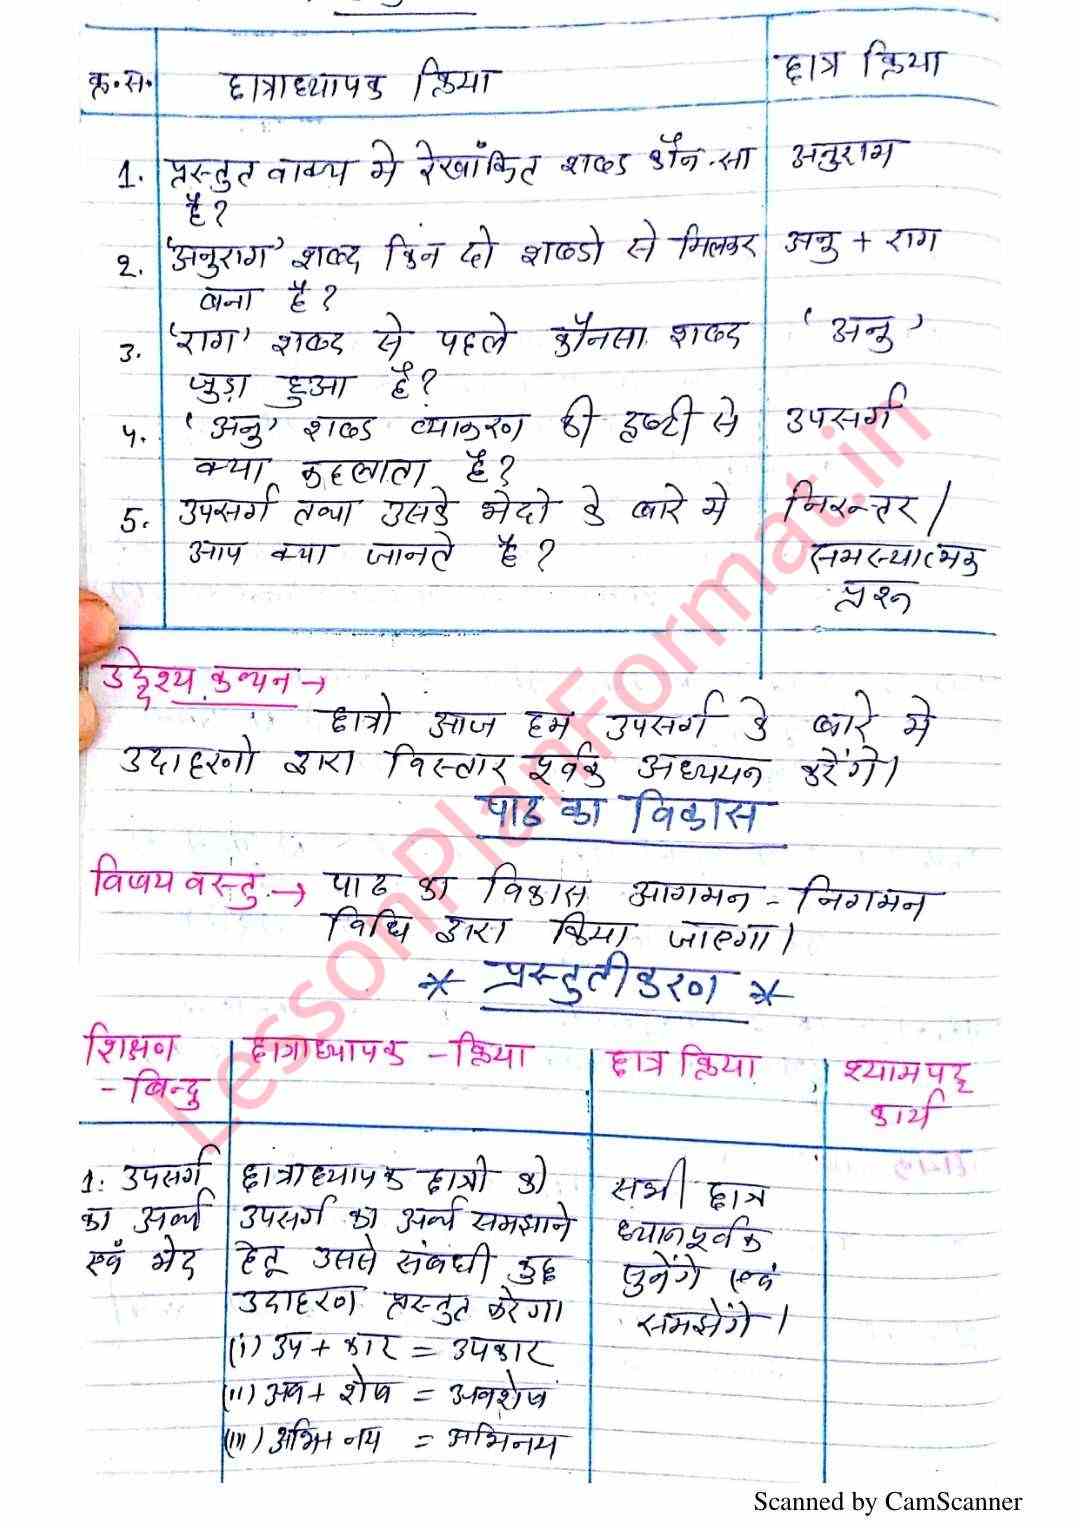 क्र.स. छात्राध्यापक क्रिया छात्र क्रिया
1. प्रस्तुत वाक्य मे रेखांकित शब्द कौन-सा अनुराग
है?
2. 'अनुराग' शब्द किन दो शब्दो से मिलकर अनु + राग
बना है?
3. 'राग' शब्द से पहले कौनसा शब्द 'अनु'
जुड़ा हुआ है?
4. 'अनु' शब्द व्याकरण की दृष्टी से उपसर्ग
क्या कहलाता है?
5. उपसर्ग तथा उसके भेदो के बारे मे निरन्तर /
आप क्या जानते है? समस्यात्मक
प्रश्न
उद्देश्य कथन →
छात्रो आज हम उपसर्ग के बारे मे
उदाहरणो द्वारा विस्तार पूर्वक अध्ययन करेंगे।
पाठ का विकास
विषय वस्तु → पाठ का विकास आगमन - निगमन
विधि द्वारा किया जाएगा।
* प्रस्तुतीकरण *
शिक्षण छात्राध्यापक - क्रिया छात्र क्रिया श्यामपट्ट
- बिन्दु कार्य
1. उपसर्ग छात्राध्यापक छात्रो को सभी छात्र
का अर्थ उपसर्ग का अर्थ समझाने ध्यानपूर्वक
एवं भेद हेतू उससे संबंधी कुछ सुनेंगे एवं
उदाहरण प्रस्तुत करेगा। समझेंगे।
(i) उप + कार = उपकार
(ii) अव + शेष = अवशेष
(iii) अभि नय = अभिनय
LessonPlanFormat.in
Scanned by CamScanner